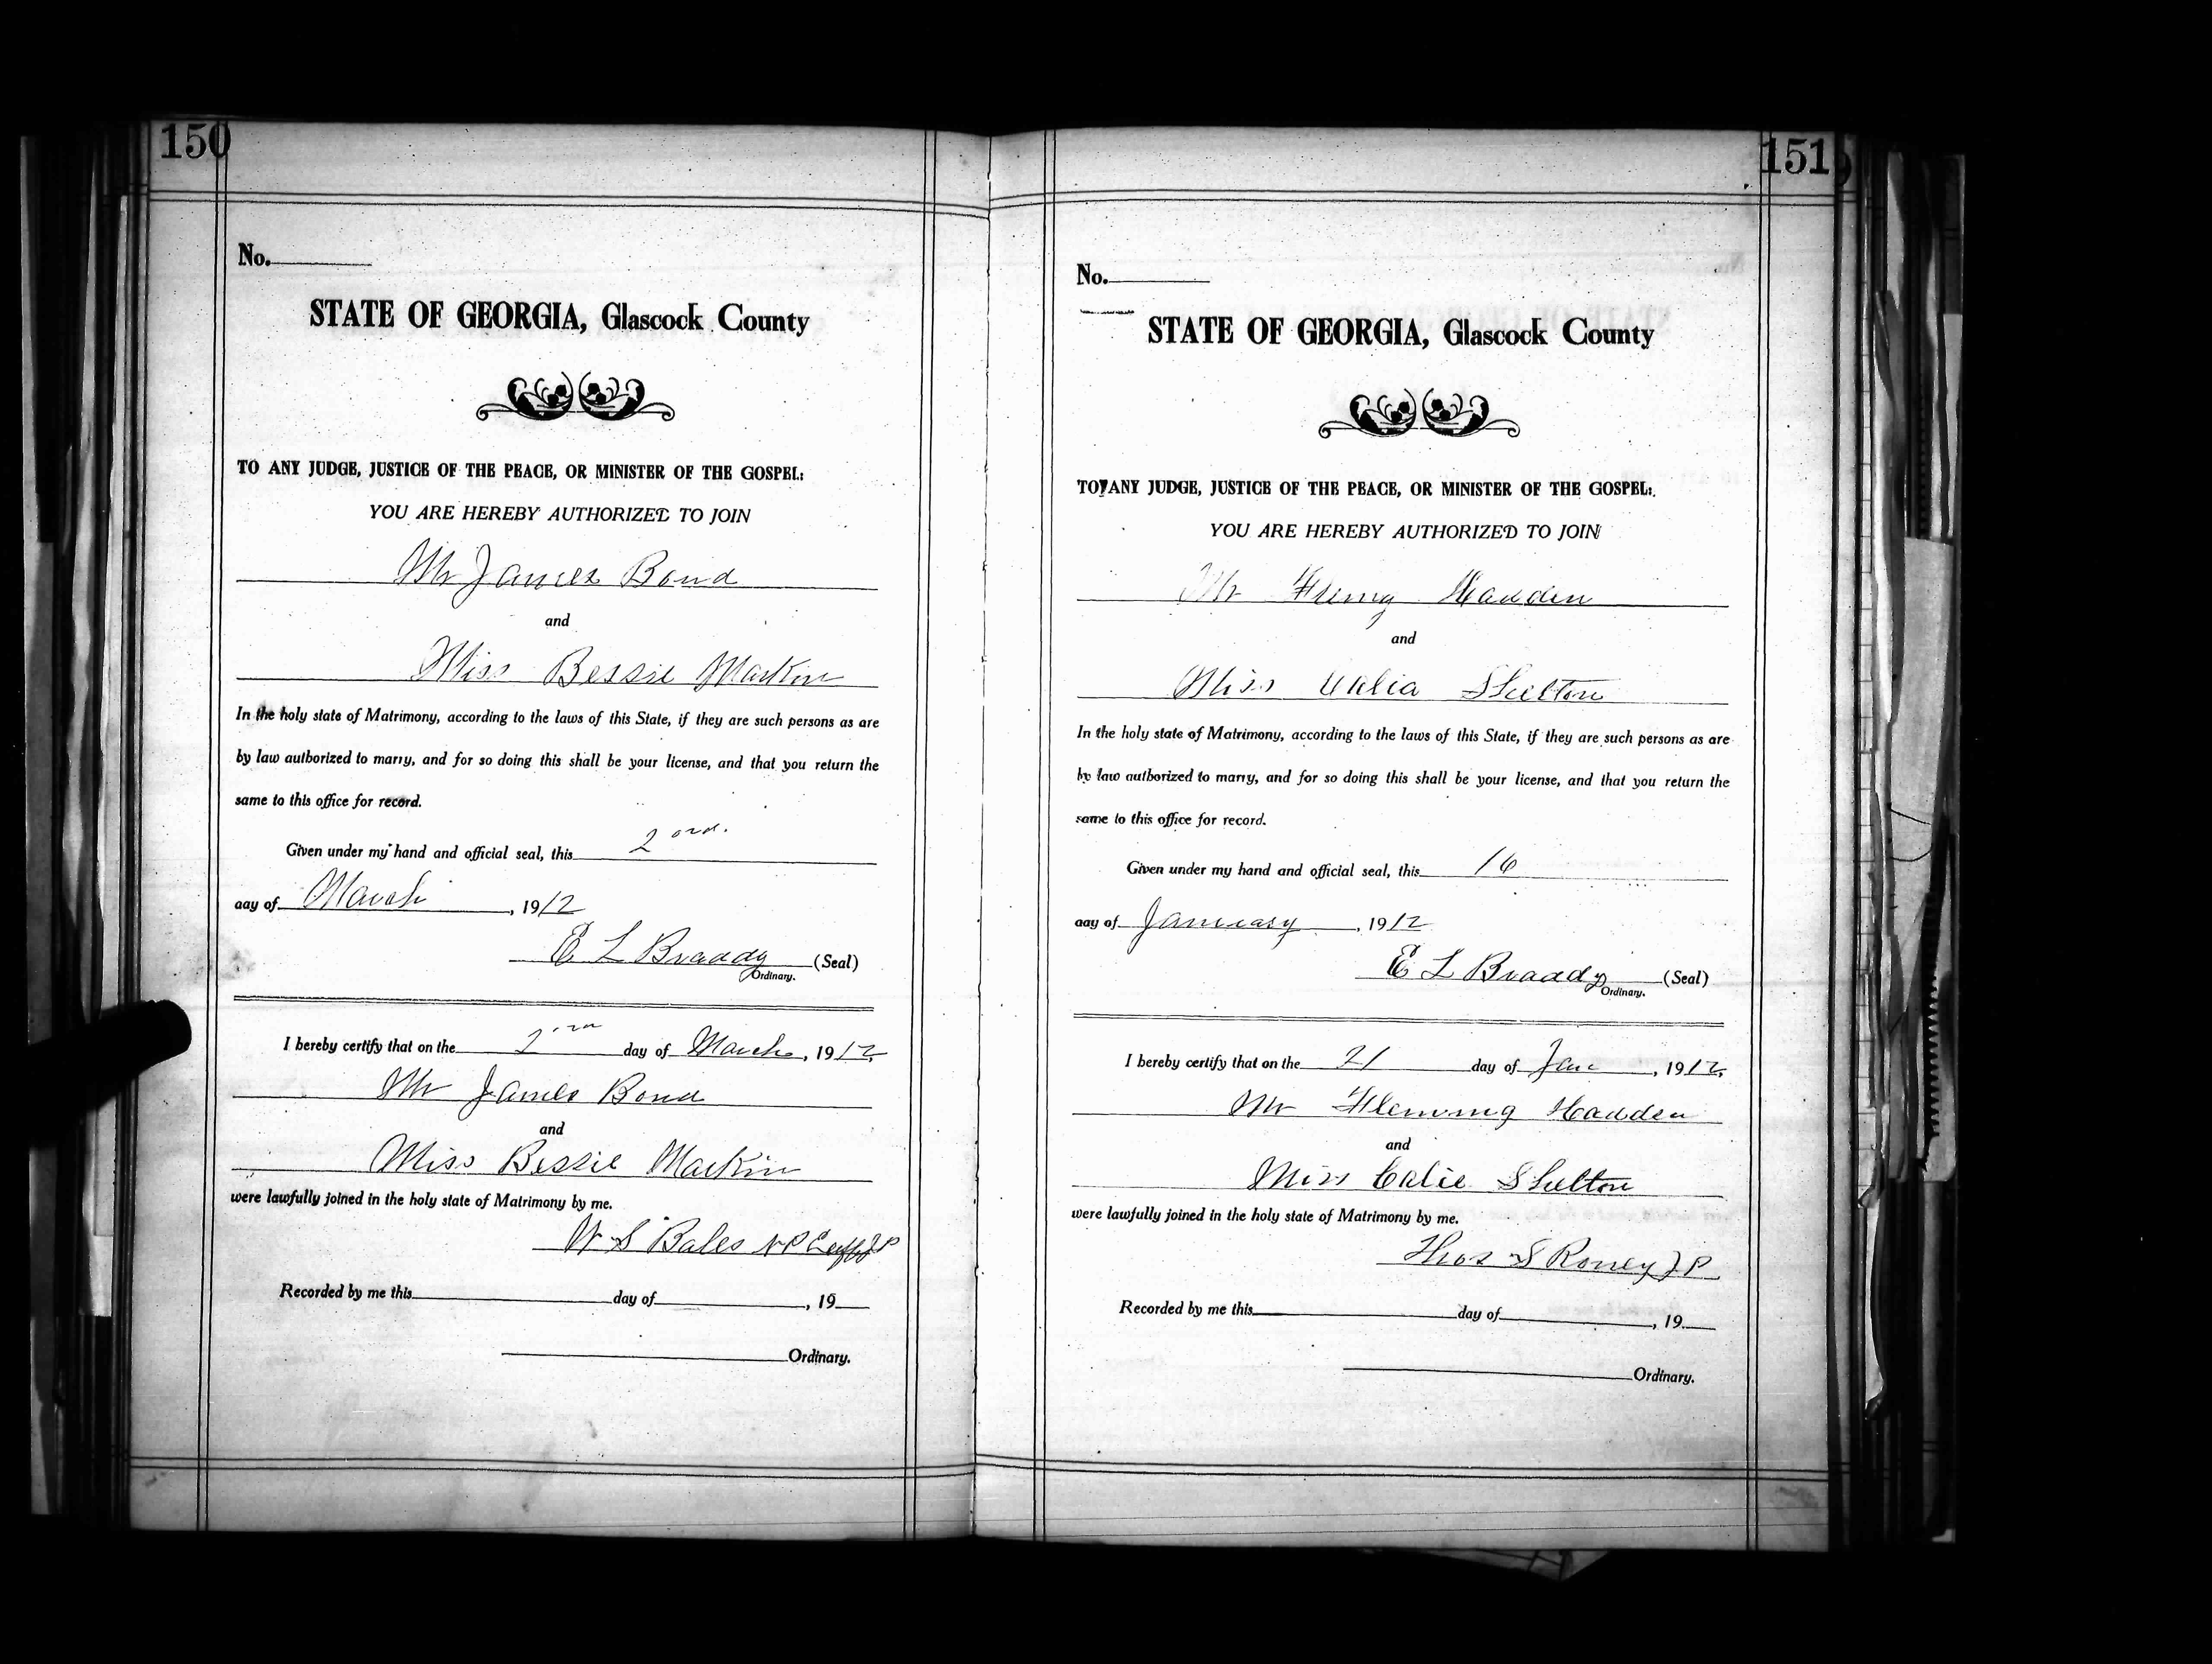 150
No.
STATE OF GEORGIA, Glascock County
TO ANY JUDGE, JUSTICE OF THE PEACE, OR MINISTER OF THE GOSPEL:
YOU ARE HEREBY AUTHORIZED TO JOIN
Mr James Bond
and
Miss Bessie Markin
In the holy state of Matrimony, according to the laws of this State, if they are such persons as are
by law authorized to marry, and for so doing this shall be your license, and that you return the
same to this office for record.
Given under my hand and official seal, this 2
day of March, 1912
E L Braddy (Seal)
Ordinary.
I hereby certify that on the 2 day of March, 1912
Mr James Bond
and
Miss Bessie Markin
were lawfully joined in the holy state of Matrimony by me.
W S Bales N P
Recorded by me this day of , 19
Ordinary.
151
No.
STATE OF GEORGIA, Glascock County
TO ANY JUDGE, JUSTICE OF THE PEACE, OR MINISTER OF THE GOSPEL:
YOU ARE HEREBY AUTHORIZED TO JOIN
Mr Hadden
and
Miss Shelton
In the holy state of Matrimony, according to the laws of this State, if they are such persons as are
by law authorized to marry, and for so doing this shall be your license, and that you return the
same to this office for record.
Given under my hand and official seal, this 16
day of January, 1912
E L Braddy (Seal)
Ordinary.
I hereby certify that on the 21 day of Jan, 1912,
Mr Fleming Hadden
and
Miss Calie Shelton
were lawfully joined in the holy state of Matrimony by me.
Thos S Roney J P
Recorded by me this day of , 19
Ordinary.